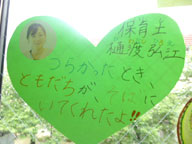 保育士
樋渡弘江
つらかったとき、
ともだちが、そばに、
いてくれたよ!!